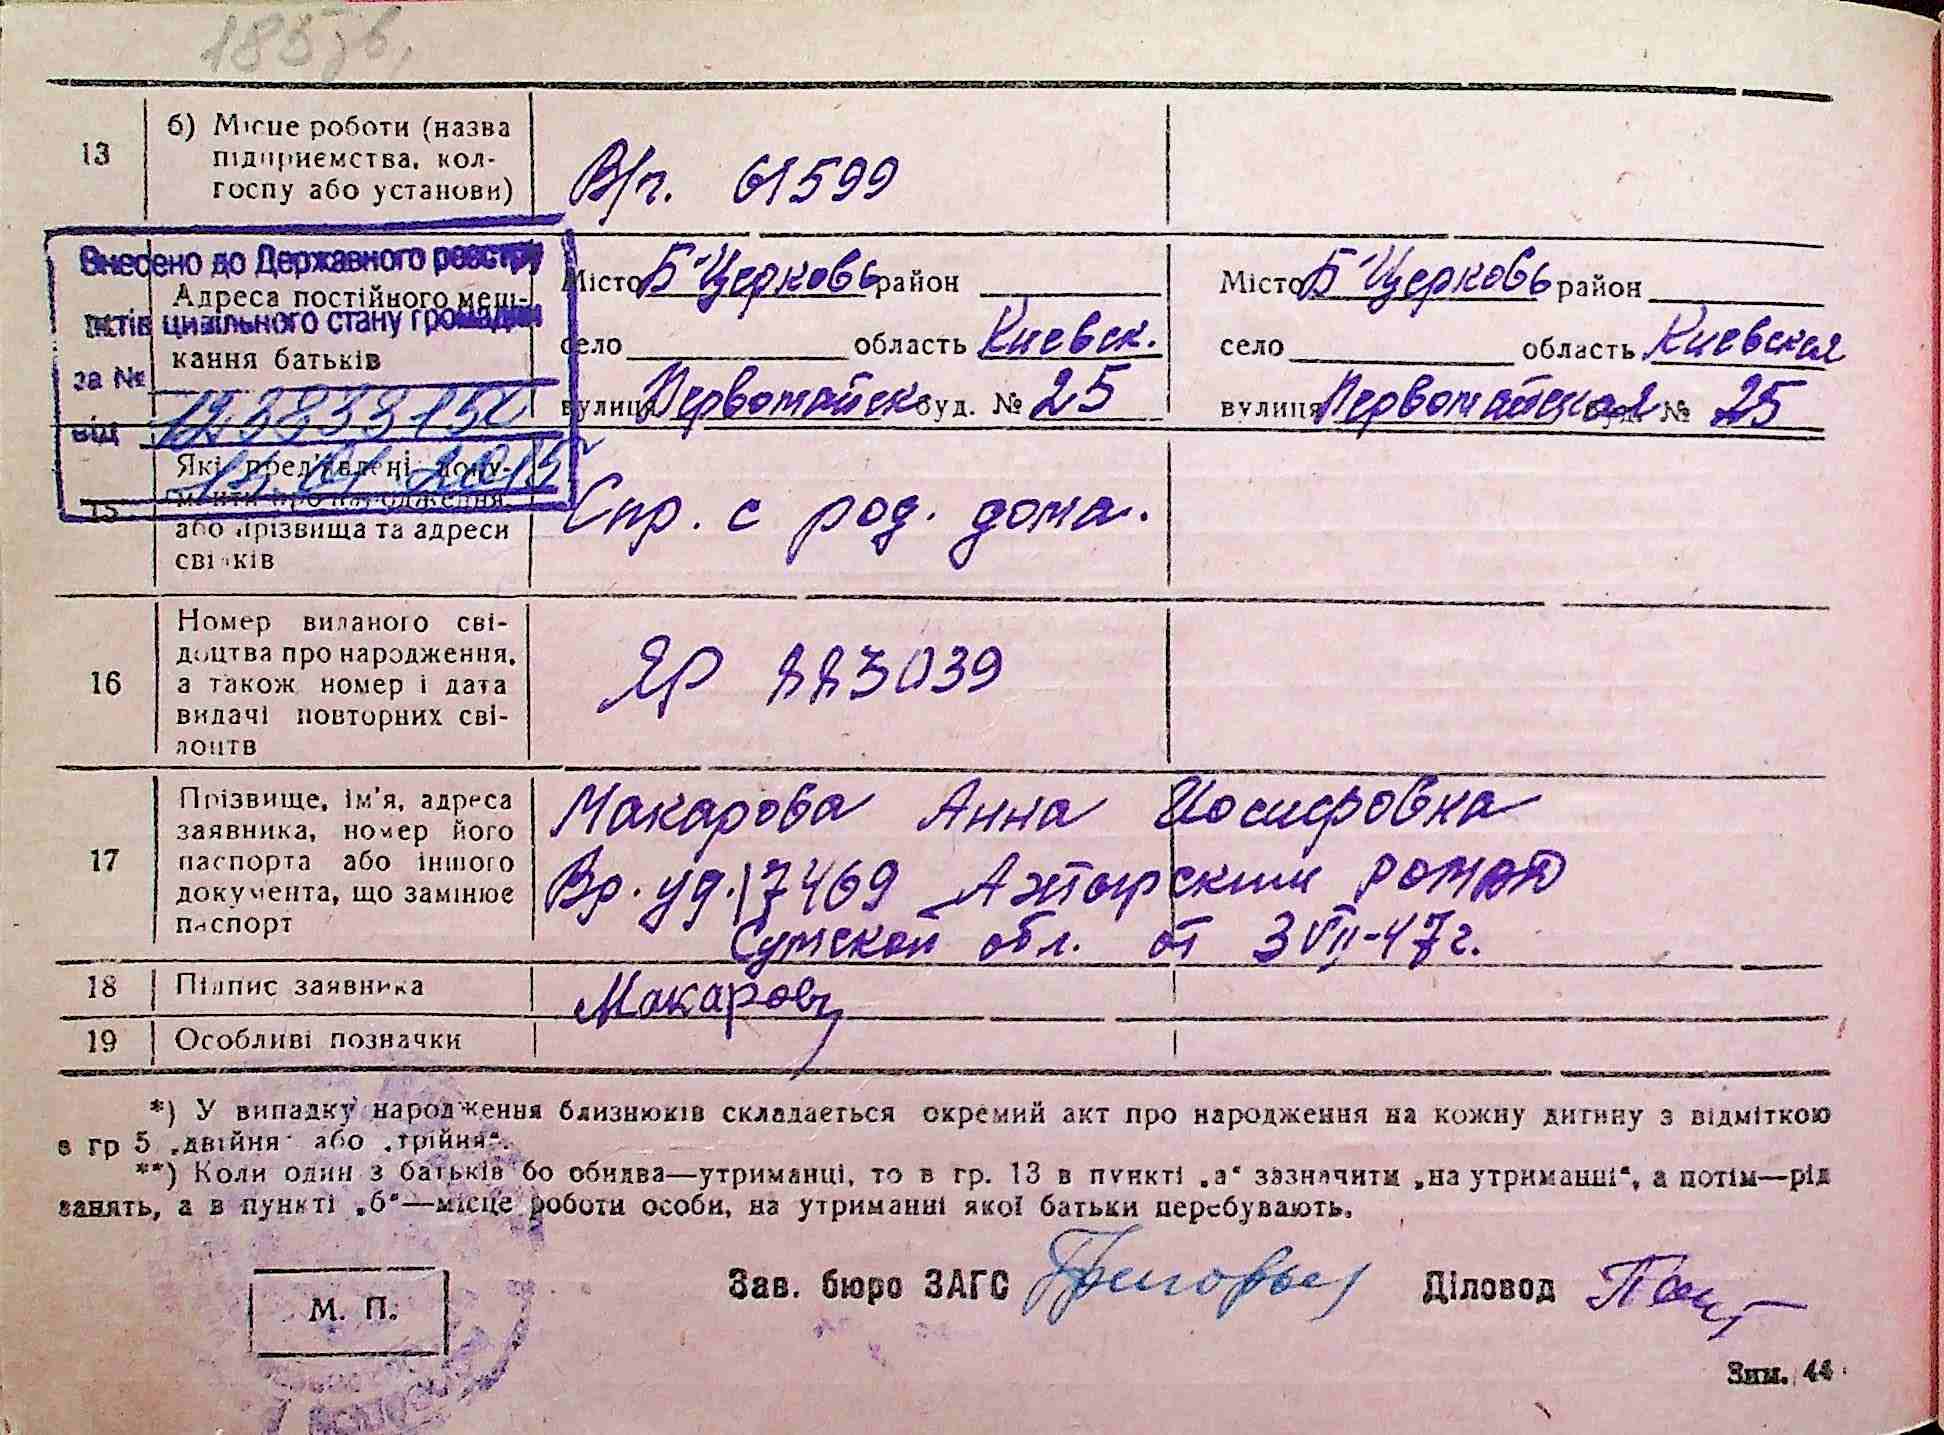 13
б) Місце роботи (назва
підприємства, кол-
госпу або установи)
В/ч. 61599
Внесено до Державного реєстру
актів цивільного стану громадян
за №
від
Адреса постійного меш-
кання батьків
Місто Б-Церковь район
село область Киевск.
вулиця Первомайск буд. № 25
Місто Б-Церковь район
село область Киевская
вулиця Первомайская буд. № 25
15
Які пред'явлені доку-
менти про народження,
або прізвища та адреси
свідків
Спр. с род. дома.
16
Номер виданого сві-
доцтва про народження,
а також номер і дата
видачі повторних сві-
доцтв
ЯР
17
Прізвище, ім'я, адреса
заявника, номер його
паспорта або іншого
документа, що замінює
паспорт
Макарова Анна Иосифовна
Вр. уд. 17469 Ахтырским
Сумской обл. от 3 VII-47г.
18
Підпис заявника
Макарова
19
Особливі позначки
*) У випадку народження близнюків складається окремий акт про народження на кожну дитину з відміткою
в гр 5 „двійня“ або „трійня“.
**) Коли один з батьків бо обидва—утриманці, то в гр. 13 в пункті „а“ зазначити „на утриманні“, а потім—рід
занять, а в пункті „б“—місце роботи особи, на утриманні якої батьки перебувають.
М. П.
Зав. бюро ЗАГС
Діловод
Зим. 44